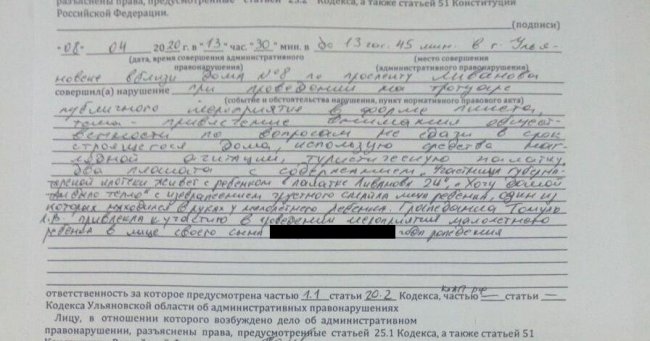 разъяснены права, предусмотренные статьей 25.2 Кодекса, а также статьей 51 Конституции
Российской Федерации.
(подписи)
"08" 04 2020 г. в "13" час. "30" мин. в до 13 час. 45 мин. в г. Улья-
(дата, время совершения административного правонарушения) (место совершения административного правонарушения)
новске вблизи дома №8 по проспекту Ливанова
совершил(а) нарушение при проведении на тротуаре
(событие и обстоятельства нарушения, пункт нормативного правового акта)
публичного мероприятия в форме пикета,
тема - привлечение внимания общест-
венности по вопросам не сдачи в срок
строящегося дома, использую средства наг-
лядной агитации, туристическую палатку,
два плаката с содержанием "Участница губерна-
торской ипотеки живет с ребенком в палатке Ливанова 24", "Хочу домой
там было тепло" с изображением грустного смайла ребенка, один из
которых находился в руках у малолетнего ребенка. Гражданка
привлекла к участию в проведении мероприятия малолетнего
ребенка в лице своего сына года рождения
КоАП РФ
ответственность за которое предусмотрена частью 1.1 статьи 20.2 Кодекса, частью — статьи —
Кодекса Ульяновской области об административных правонарушениях
Лицу, в отношении которого возбуждено дело об административном
правонарушении, разъяснены права, предусмотренные статьей 25.1 Кодекса, а также статьей 51